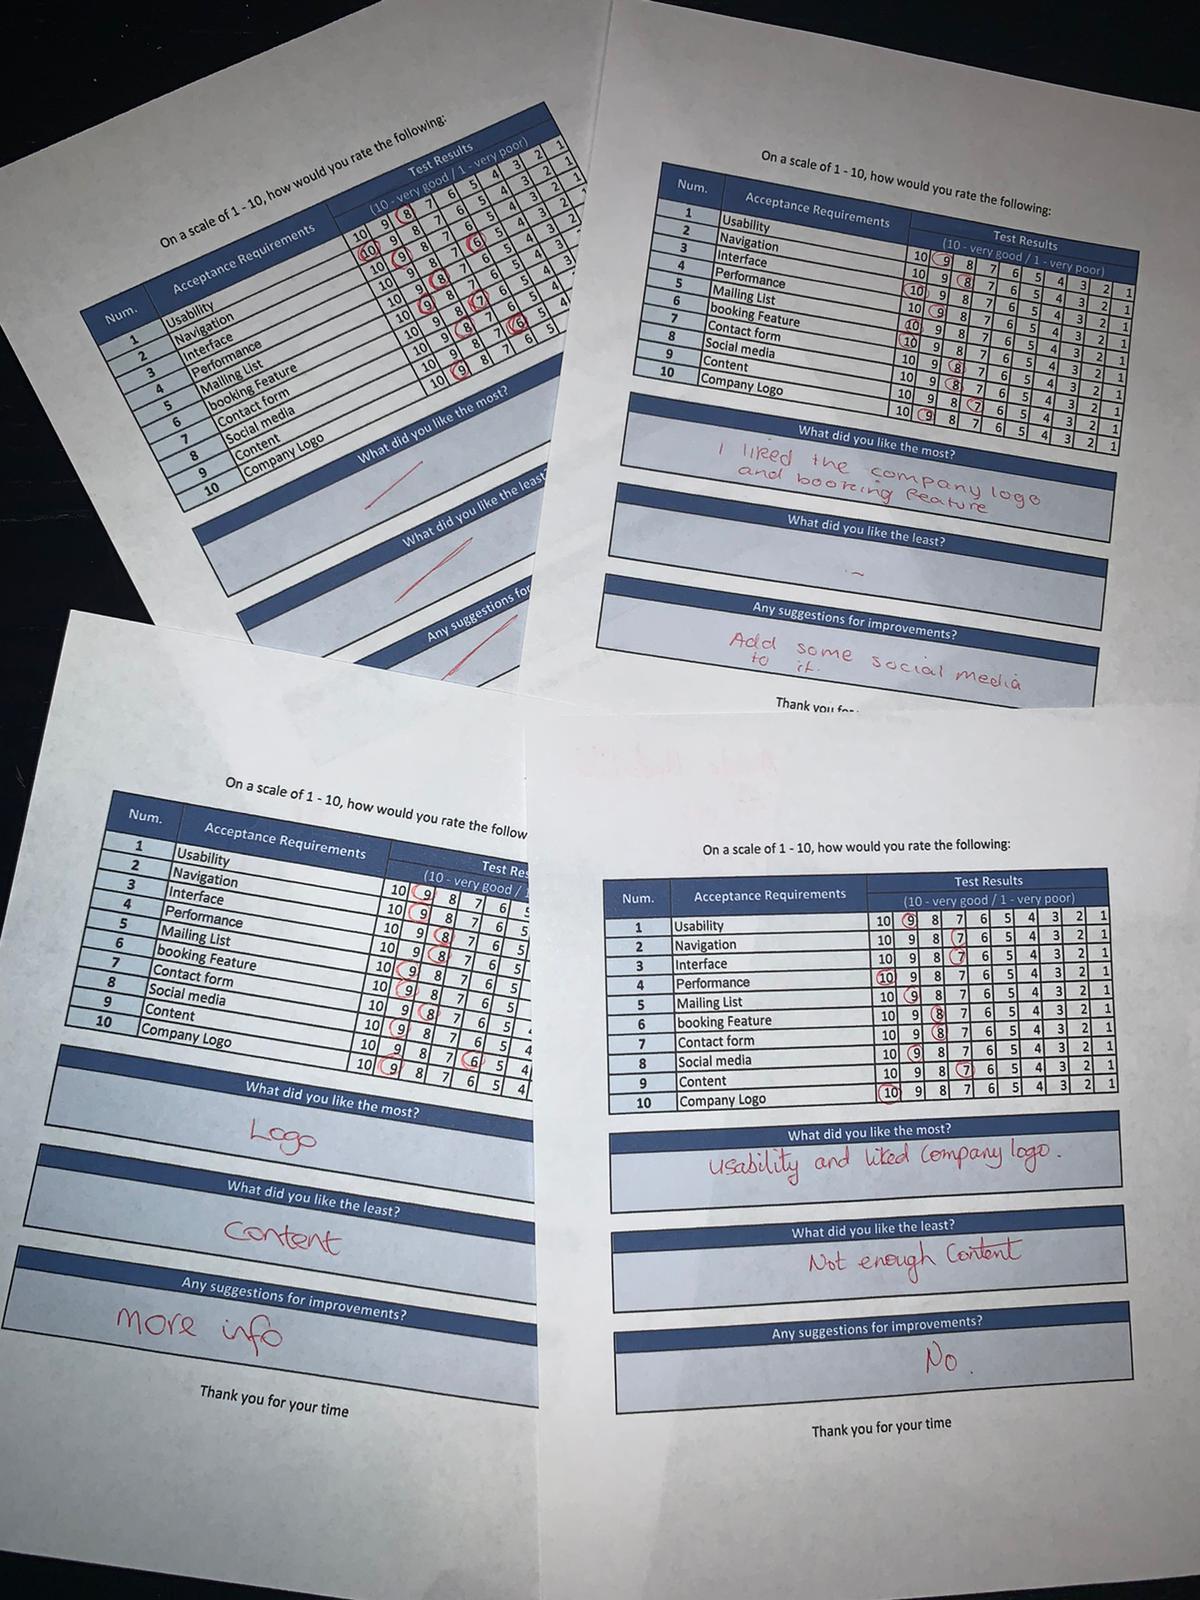 On a scale of 1 - 10, how would you rate the following:
Num. Acceptance Requirements Test Results
(10 - very good / 1 - very poor)
1 Usability 10 9 8 7 6 5 4 3 2 1
2 Navigation 10 9 8 7 6 5 4 3 2 1
3 Interface 10 9 8 7 6 5 4 3 2 1
4 Performance 10 9 8 7 6 5 4 3 2
5 Mailing List 10 9 8 7 6 5 4 3 2
6 booking Feature 10 9 8 7 6 5 4 3
7 Contact form 10 9 8 7 6 5 4 3
8 Social media 10 9 8 7 6 5 4
9 Content 10 9 8 7 6 5 4
10 Company Logo 10 9 8 7 6 5
What did you like the most?
What did you like the least?
Any suggestions for
On a scale of 1 - 10, how would you rate the following:
Num. Acceptance Requirements Test Results
(10 - very good / 1 - very poor)
1 Usability 10 9 8 7 6 5 4 3 2 1
2 Navigation 10 9 8 7 6 5 4 3 2 1
3 Interface 10 9 8 7 6 5 4 3 2 1
4 Performance 10 9 8 7 6 5 4 3 2 1
5 Mailing List 10 9 8 7 6 5 4 3 2 1
6 booking Feature 10 9 8 7 6 5 4 3 2 1
7 Contact form 10 9 8 7 6 5 4 3 2 1
8 Social media 10 9 8 7 6 5 4 3 2 1
9 Content 10 9 8 7 6 5 4 3 2 1
10 Company Logo 10 9 8 7 6 5 4 3 2 1
What did you like the most?
I liked the company logo
and booking feature
What did you like the least?
Any suggestions for improvements?
Add some social media
to it.
Thank you for
On a scale of 1 - 10, how would you rate the follow
Num. Acceptance Requirements Test Res
(10 - very good / 1
1 Usability 10 9 8 7 6 5
2 Navigation 10 9 8 7 6 5
3 Interface 10 9 8 7 6 5
4 Performance 10 9 8 7 6 5
5 Mailing List 10 9 8 7 6 5
6 booking Feature 10 9 8 7 6 5
7 Contact form 10 9 8 7 6 5
8 Social media 10 9 8 7 6 5 4
9 Content 10 9 8 7 6 5 4
10 Company Logo 10 9 8 7 6 5 4
What did you like the most?
Logo
What did you like the least?
Content
Any suggestions for improvements?
more info
Thank you for your time
On a scale of 1 - 10, how would you rate the following:
Num. Acceptance Requirements Test Results
(10 - very good / 1 - very poor)
1 Usability 10 9 8 7 6 5 4 3 2 1
2 Navigation 10 9 8 7 6 5 4 3 2 1
3 Interface 10 9 8 7 6 5 4 3 2 1
4 Performance 10 9 8 7 6 5 4 3 2 1
5 Mailing List 10 9 8 7 6 5 4 3 2 1
6 booking Feature 10 9 8 7 6 5 4 3 2 1
7 Contact form 10 9 8 7 6 5 4 3 2 1
8 Social media 10 9 8 7 6 5 4 3 2 1
9 Content 10 9 8 7 6 5 4 3 2 1
10 Company Logo 10 9 8 7 6 5 4 3 2 1
What did you like the most?
Usability and liked company logo.
What did you like the least?
Not enough Content
Any suggestions for improvements?
No.
Thank you for your time